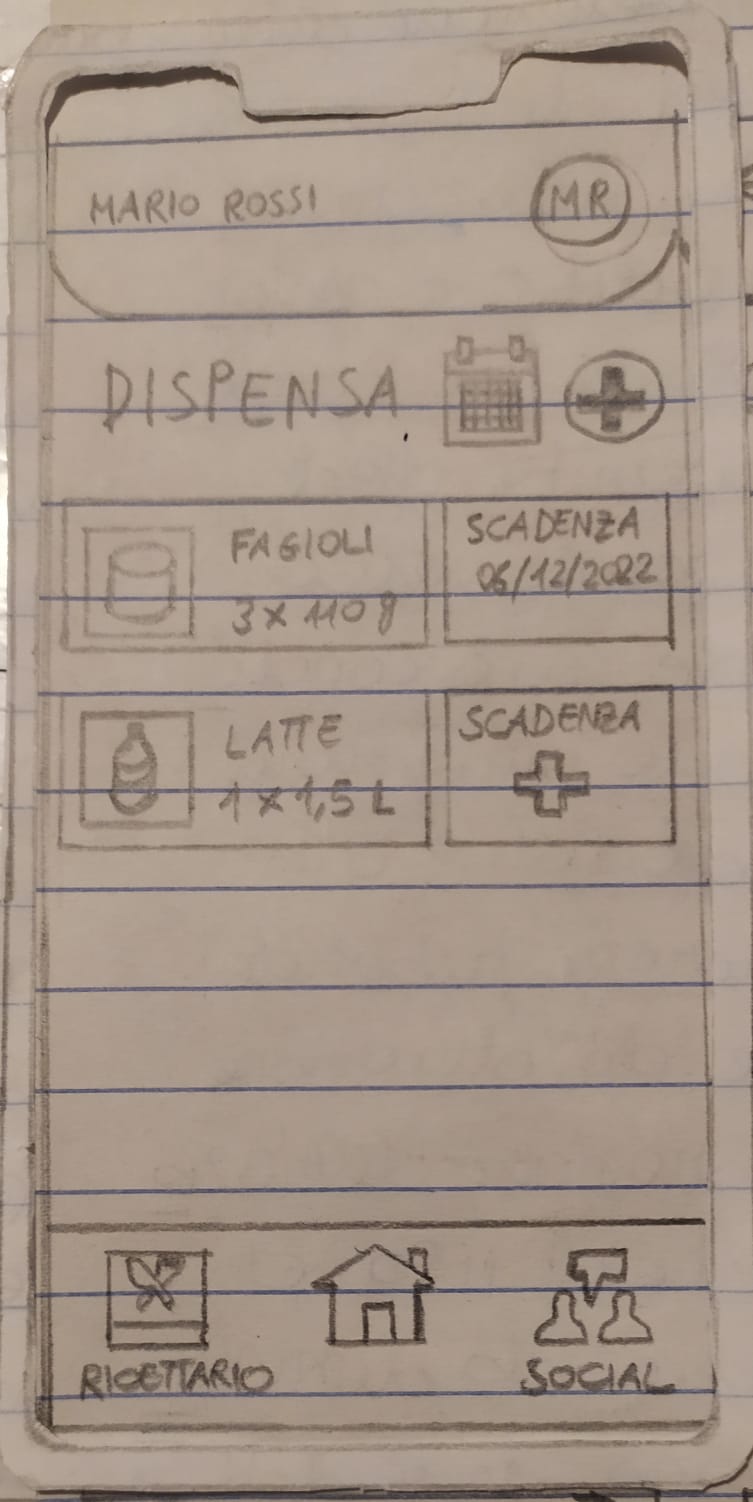 MARIO ROSSI
MR
DISPENSA
FAGIOLI
3 x 110 g
SCADENZA
06/12/2022
LATTE
1 x 1,5 L
SCADENZA
RICETTARIO
SOCIAL